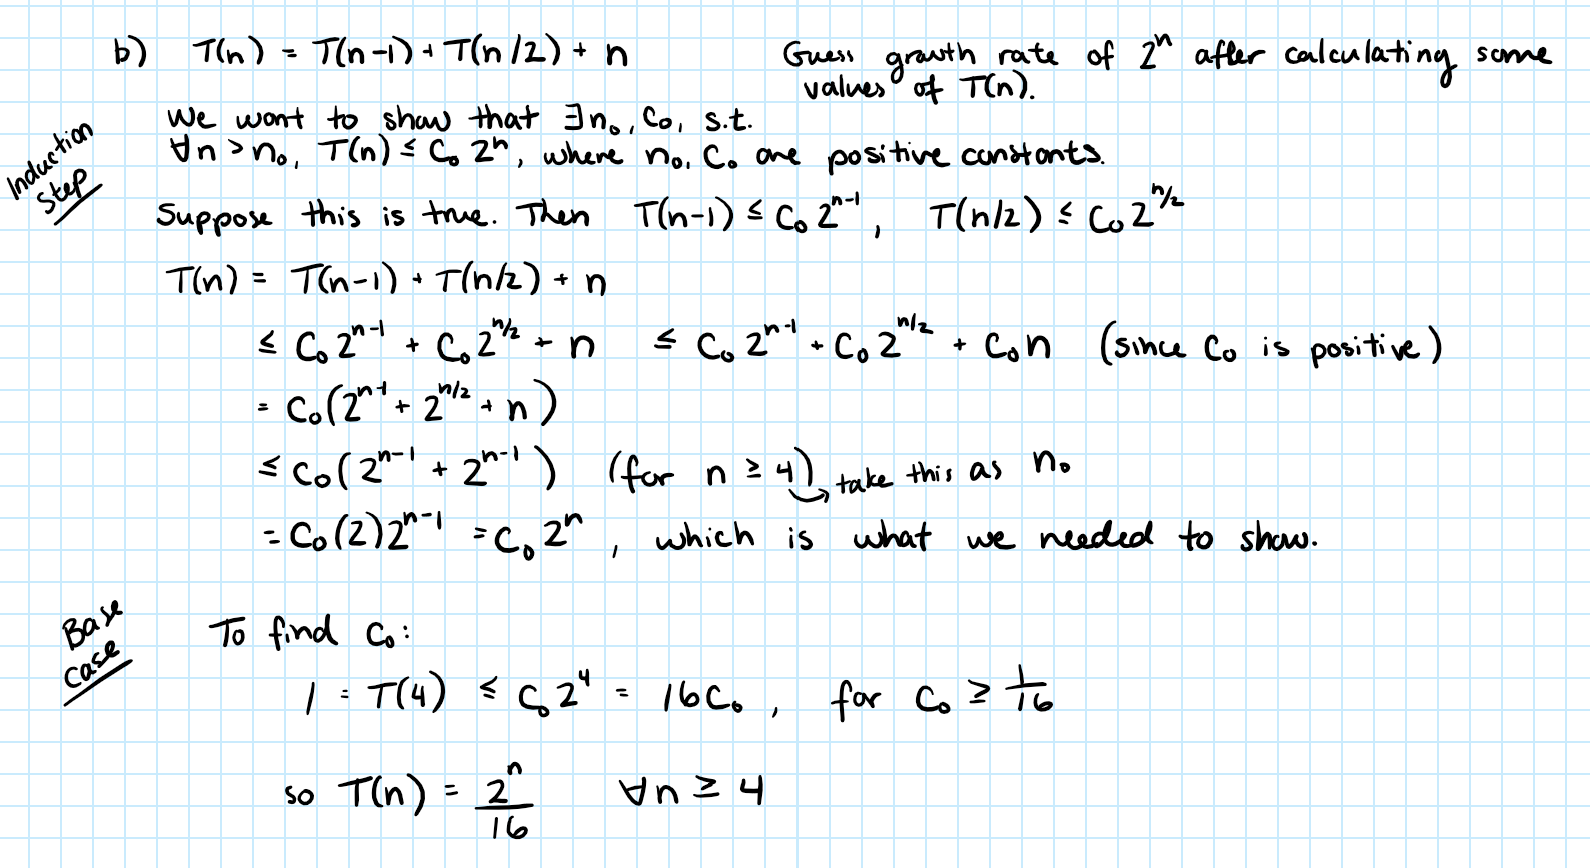 b) T(n) = T(n-1) + T(n/2) + n
Guess growth rate of 2^n after calculating some
values of T(n).
We want to show that ∃n₀, C₀, s.t.
∀n > n₀, T(n) ≤ C₀ 2^n, where n₀, C₀ are positive constants.
Induction
Step
Suppose this is true. Then T(n-1) ≤ C₀ 2^{n-1}, T(n/2) ≤ C₀ 2^{n/2}
T(n) = T(n-1) + T(n/2) + n
≤ C₀ 2^{n-1} + C₀ 2^{n/2} + n ≤ C₀ 2^{n-1} + C₀ 2^{n/2} + C₀ n (since C₀ is positive)
= C₀(2^{n-1} + 2^{n/2} + n)
≤ C₀(2^{n-1} + 2^{n-1}) (for n ≥ 4) → take this as n₀
= C₀(2)2^{n-1} = C₀ 2^n, which is what we needed to show.
Base
case
To find C₀:
1 = T(4) ≤ C₀ 2^4 = 16C₀, for C₀ ≥ 1/16
so T(n) = 2^n/16 ∀n ≥ 4